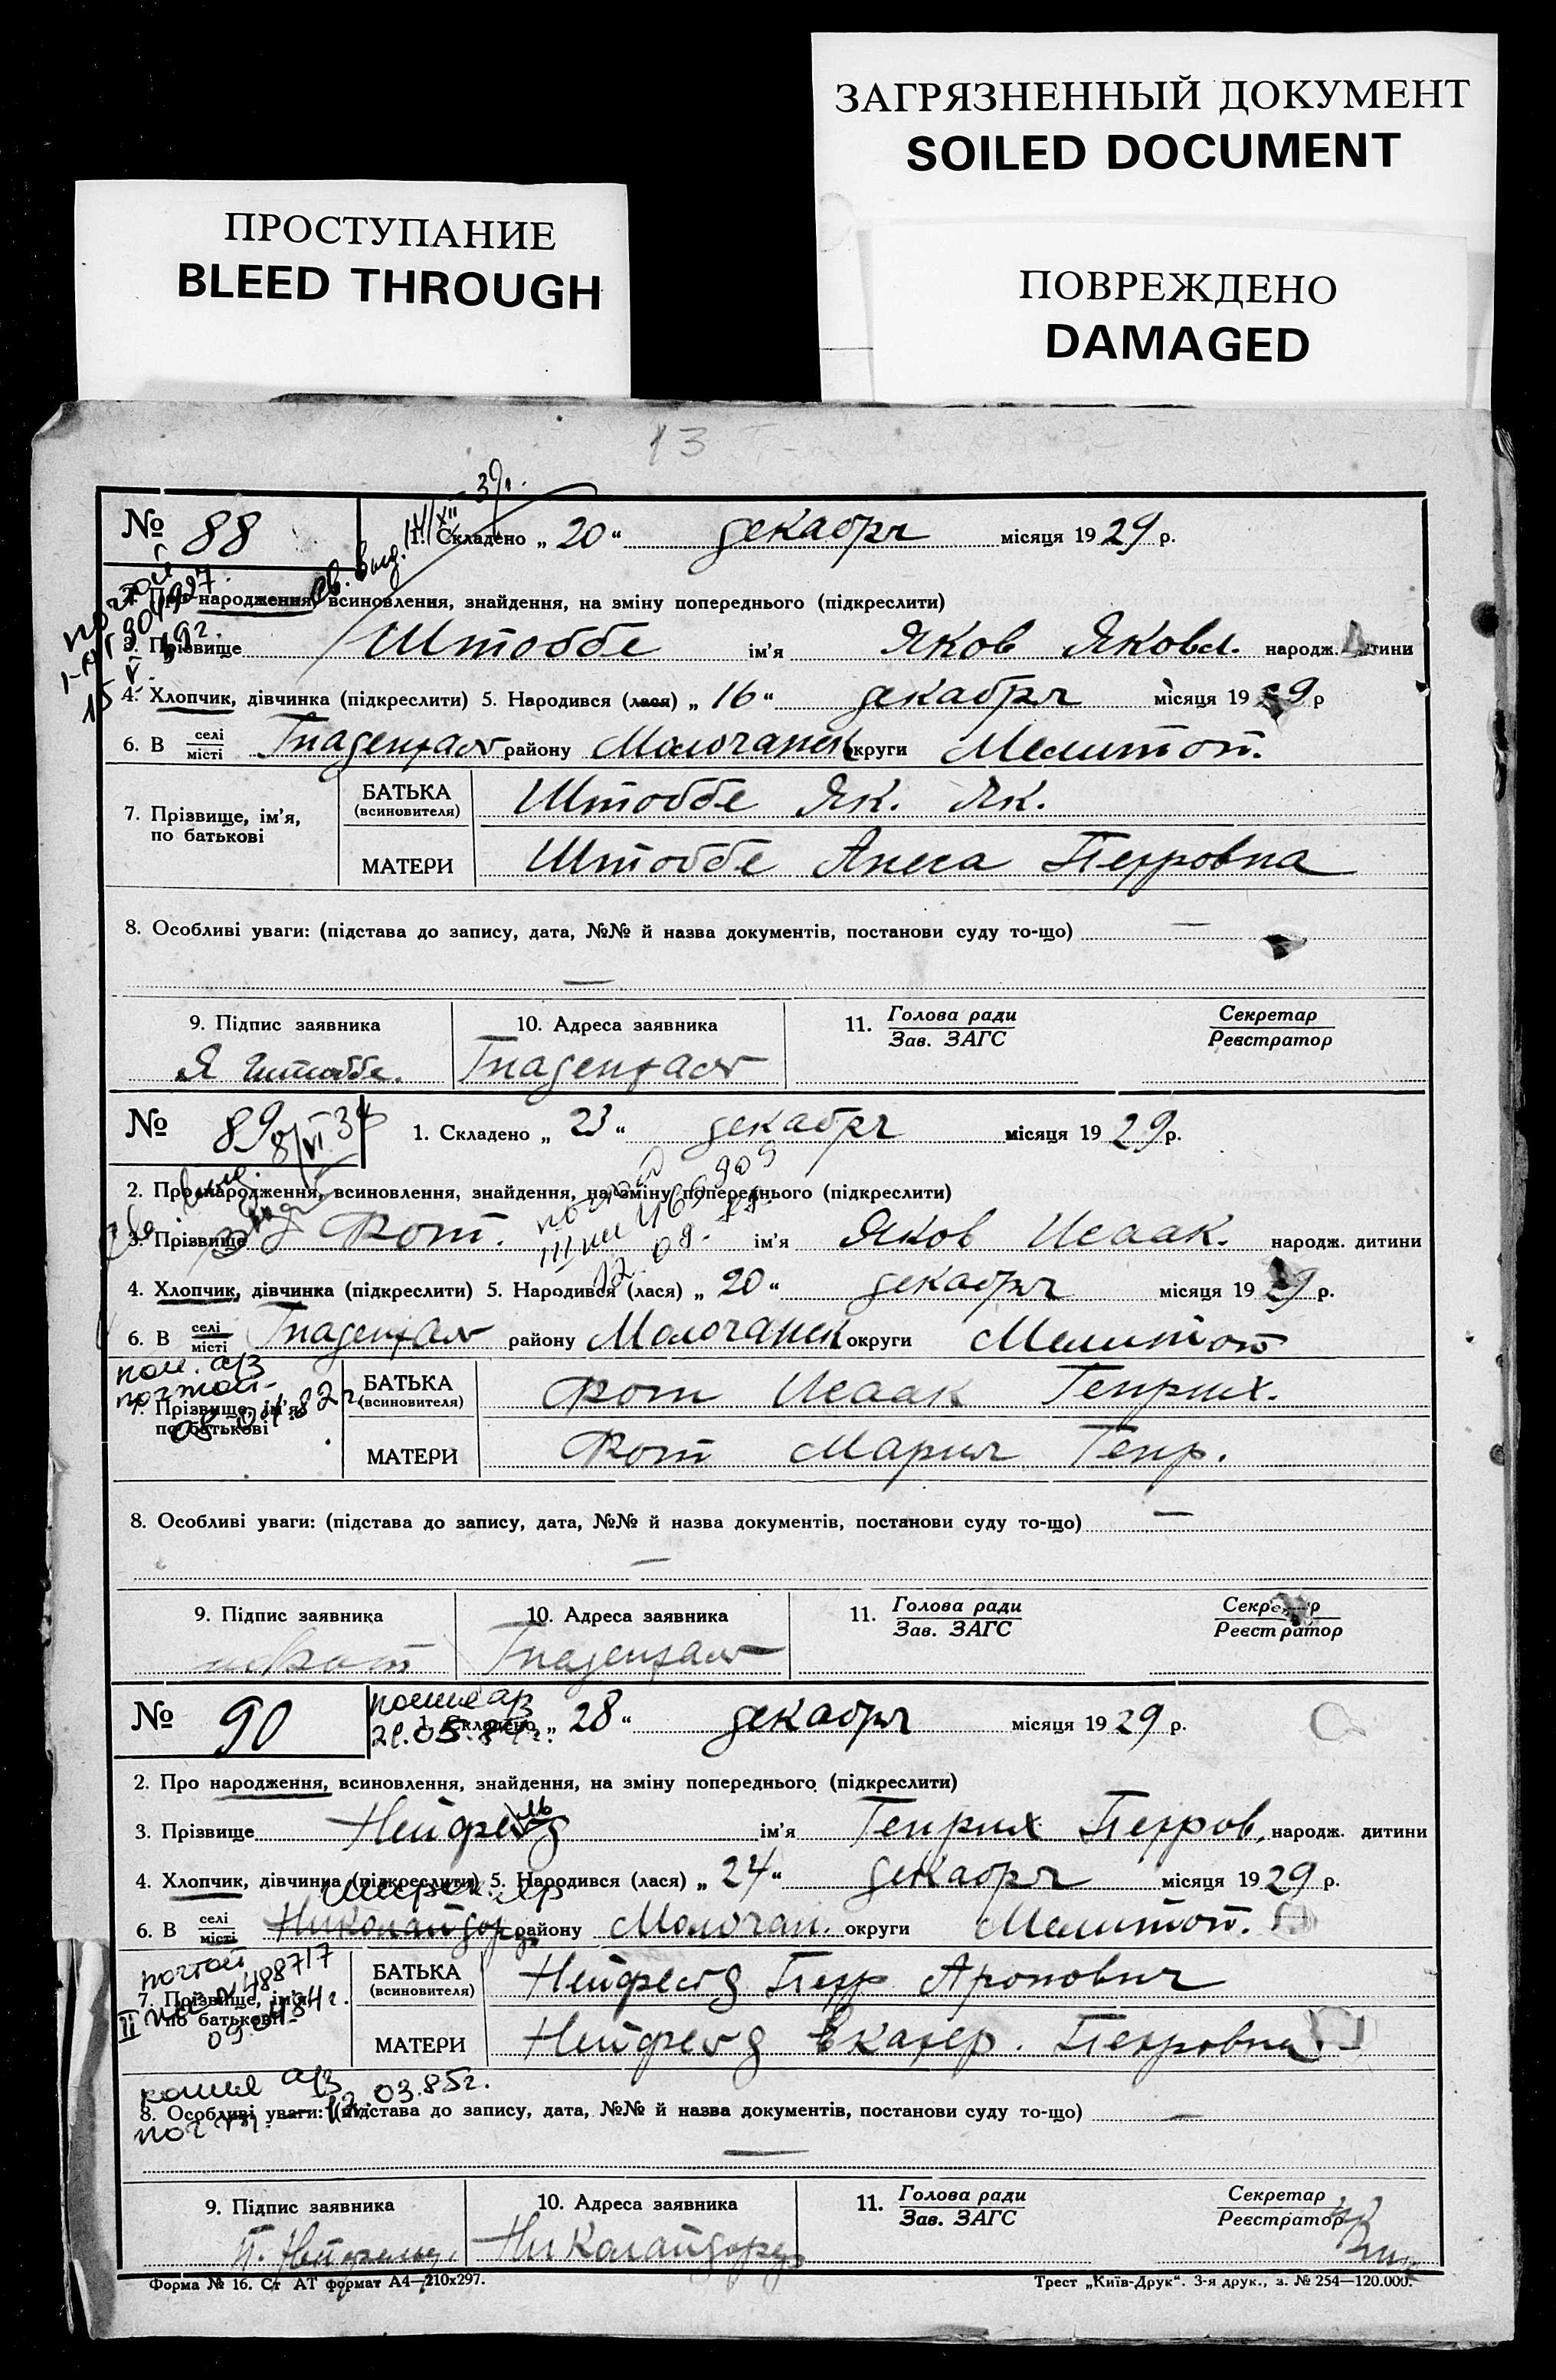 ЗАГРЯЗНЕННЫЙ ДОКУМЕНТ
SOILED DOCUMENT
ПРОСТУПАНИЕ
BLEED THROUGH
ПОВРЕЖДЕНО
DAMAGED
13
№ 88
1. Складено „ 20 “ декабря місяця 1929 р.
2. Про народження, всиновлення, знайдення, на зміну попереднього (підкреслити)
3. Прізвище Штоббе ім'я Яков Яковл. народж. дитини
4. Хлопчик, дівчинка (підкреслити) 5. Народився (лася) „ 16 “ декабря місяця 1929 р
6. В селі/місті Гнаденталь району Молочанск округи Мелитоп.
7. Прізвище, ім'я, по батькові
БАТЬКА (всиновителя) Штоббе Як. Як.
МАТЕРИ Штоббе Анеса Петровна
8. Особливі уваги: (підстава до запису, дата, №№ й назва документів, постанови суду то-що) —
—
9. Підпис заявника 10. Адреса заявника 11. Голова ради/Зав. ЗАГС Секретар/Реєстратор
Я Штоббе. Гнаденталь
№ 89 8/VI 34
1. Складено „ 23 “ декабря місяця 1929 р.
2. Про народження, всиновлення, знайдення, на зміну попереднього (підкреслити)
3. Прізвище Фот. ім'я Яков Исаак. народж. дитини
4. Хлопчик, дівчинка (підкреслити) 5. Народився (лася) „ 20 “ декабря місяця 1929 р.
6. В селі/місті Гнаденталь району Молочанск округи Мелитоп
пов. а/з
почтой
08.04.82 г.
7. Прізвище, ім'я, по батькові
БАТЬКА (всиновителя) Фот Исаак Генрих.
МАТЕРИ Фот Мария Генр.
8. Особливі уваги: (підстава до запису, дата, №№ й назва документів, постанови суду то-що) —
—
9. Підпис заявника 10. Адреса заявника 11. Голова ради/Зав. ЗАГС Секретар/Реєстратор
Фот Гнаденталь
№ 90
копия а/з
1. Складено „ 28 “ декабря місяця 1929 р.
2. Про народження, всиновлення, знайдення, на зміну попереднього (підкреслити)
3. Прізвище Нейфельд ім'я Генрих Петров. народж. дитини
4. Хлопчик, дівчинка (підкреслити) 5. Народився (лася) „ 24 “ декабря місяця 1929 р.
6. В селі/місті Николайдорф району Молочан. округи Мелитоп.
почтой
7. Прізвище, ім'я, по батькові
БАТЬКА (всиновителя) Нейфельд Петр Аронович
МАТЕРИ Нейфельд Екатер. Петровна
копия а/з 12.03.85г.
8. Особливі уваги: (підстава до запису, дата, №№ й назва документів, постанови суду то-що) —
—
9. Підпис заявника 10. Адреса заявника 11. Голова ради/Зав. ЗАГС Секретар/Реєстратор
П. Нейфельд. Николайдорф
Форма № 16. Ст АТ формат А4—210х297. Трест „Київ-Друк“. 3-я друк., з. № 254—120.000.